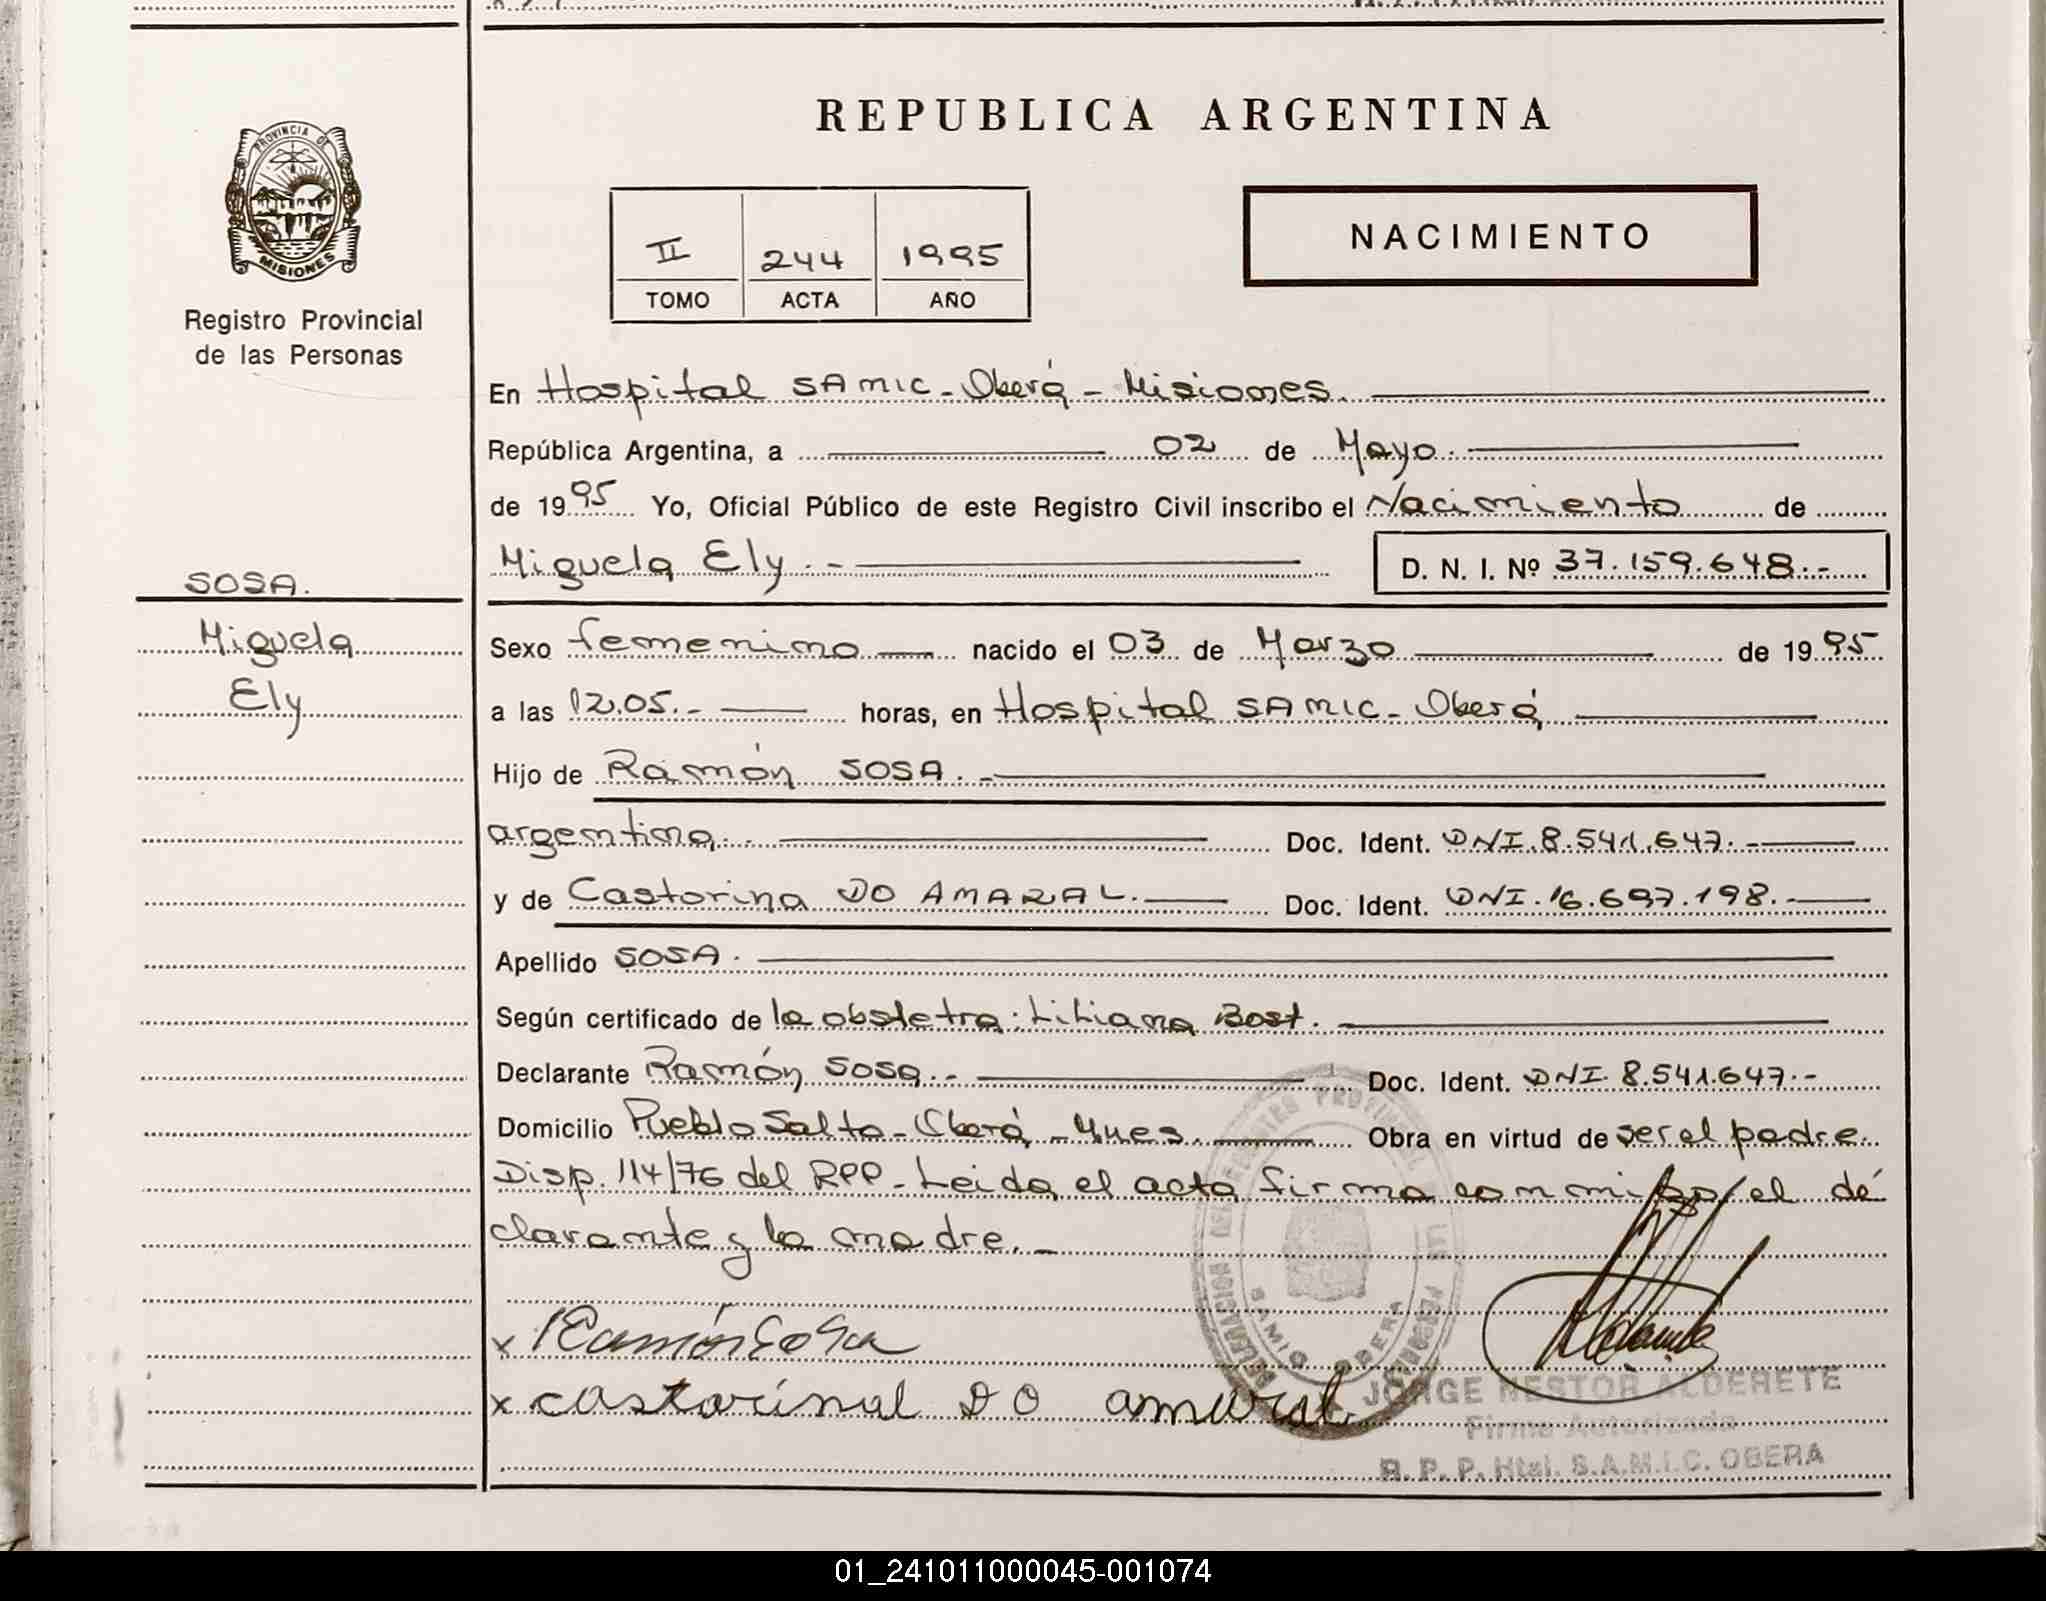 REPUBLICA ARGENTINA
PROVINCIA DE
MISIONES
Registro Provincial
de las Personas
II 244 1995
TOMO ACTA AÑO
NACIMIENTO
En Hospital SAMIC - Oberá - Misiones.
República Argentina, a 02 de Mayo.
de 1995 Yo, Oficial Público de este Registro Civil inscribo el Nacimiento de
Miguela Ely. - D. N. I. Nº 37.159.648.-
SOSA.
Miguela
Ely
Sexo femenino nacido el 03 de Marzo de 1995
a las 12.05.- horas, en Hospital SAMIC - Oberá
Hijo de Ramón SOSA. -
argentina. - Doc. Ident. DNI.8.541.647. -
y de Castorina DO AMARAL. Doc. Ident. DNI.16.697.198. -
Apellido SOSA.
Según certificado de la obstetra: Liliana Bost.
Declarante Ramón Sosa. - Doc. Ident. DNI. 8.541.647. -
Domicilio Pueblo Salto - Oberá - Mnes. Obra en virtud de ser el padre.
Disp. 114/76 del RPP - Leida el acta firma conmigo el dé
clarante y la madre. -
x Ramón Sosa
x castorinal DO amaral
SAMIC OBERA
JORGE NESTOR ALDERETE
Firma Autorizada
R. P. P. Htal. S.A.M.I.C. OBERA
01_241011000045-001074